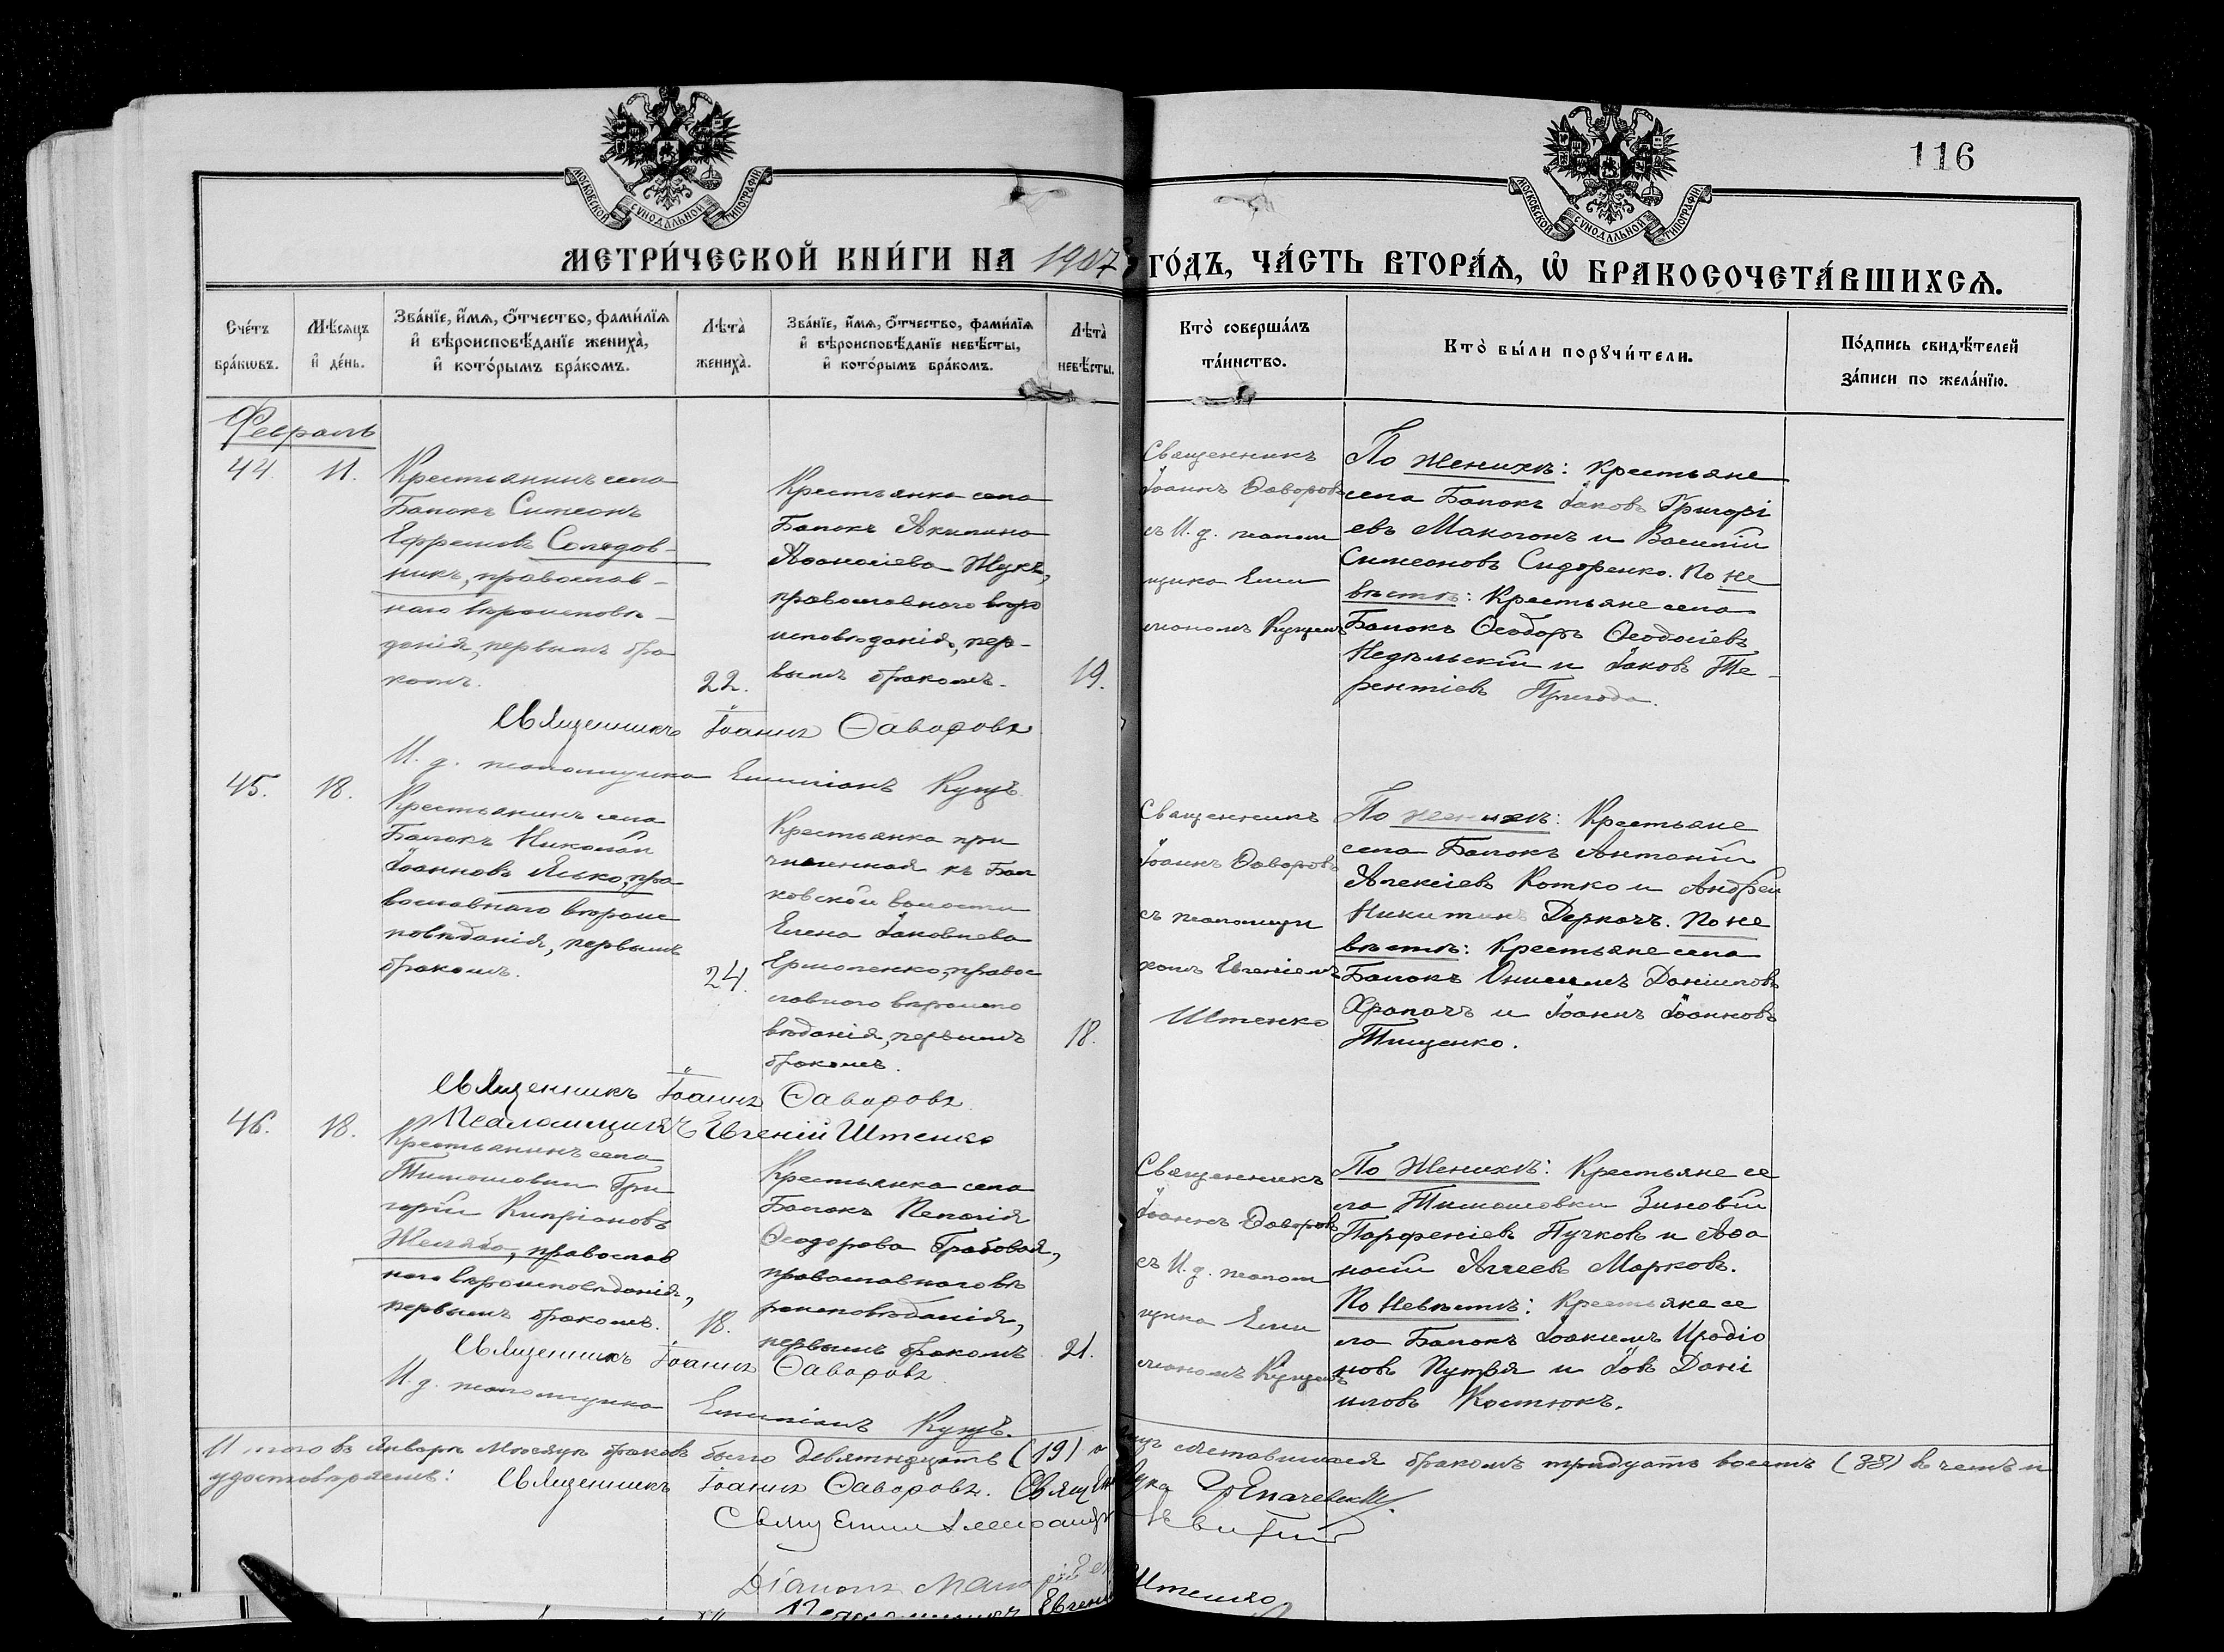 116
МОСКОВСКОЙ СУНОДАЛЬНОЙ ТИПОГРАФІИ
МОСКОВСКОЙ СУНОДАЛЬНОЙ ТИПОГРАФІИ
МЕТРИ́ЧЕСКОЙ КНИ́ГИ НА 1907
ГО́ДЪ, ЧА́СТЬ ВТОРА́Ѧ, Ѽ БРАКОСОЧЕТА́ВШИХСѦ.
Сче́тъ бра́кѡвъ.
Мѣ́сяцъ и҆ де́нь.
Зва́нїе, и҆́мѧ, ѻ҆́тчество, фами́лїѧ и҆ вѣроисповѣ́данїе жениха̀, и҆ кото́рымъ бра́комъ.
Лѣта̀ жениха̀.
Зва́нїе, и҆́мѧ, ѻ҆́тчество, фами́лїѧ и҆ вѣроисповѣ́данїе невѣ́сты, и҆ кото́рымъ бра́комъ.
Лѣта̀ невѣ́сты.
Кто̀ соверша́лъ та́инство.
Кто̀ бы́ли порꙋчи́тели.
По́дпись свидѣ́телей за́писи по жела́нїю.
Февраль
44.
11.
Крестьянинъ села
Балокъ Симеонъ
Ефремовъ Солядов-
никъ, православ-
наго вѣроисповѣ-
данія, первымъ бра
комъ.
22.
Крестьянка села
Балокъ Акилина
Аѳанасіева Жукъ,
православнаго вѣро
исповѣданія, пер-
вымъ бракомъ.
19.
Священникъ
Іоаннъ Ѳаворовъ
съ И. д. псалом
щика Еми
ліаномъ Куцемъ
По женихѣ: крестьяне
села Балокъ Іаковъ Григорі
евъ Макогонъ и Василій
Симеоновъ Сидоренко. По не
вѣстѣ: Крестьяне села
Балокъ Ѳеодоръ Ѳеодосіевъ
Недѣльскій и Іаковъ Те-
рентіевъ Пригода.
Священникъ Іоаннъ Ѳаворовъ
И. д. псаломщика Емиліанъ Куцъ.
45.
18.
Крестьянинъ села
Балокъ Николай
Іоанновъ Яцко, пра
вославнаго вѣроис
повѣданія, первымъ
бракомъ.
24.
Крестьянка при
численная къ Бал
ковской волости
Елена Іаковлева
Ермоленко, правос
лавнаго вѣроиспо
вѣданія, первымъ
бракомъ.
18.
Священникъ
Іоаннъ Ѳаворовъ
съ псаломщи
комъ Евгеніемъ
Штенко
По женихѣ: Крестьяне
села Балокъ Антоній
Алексіевъ Котко и Андрей
Никитинъ Деркачъ. По не
вѣстѣ: Крестьяне села
Балокъ Онисимъ Даніиловъ
Храпачъ и Іоаннъ Іоанновъ
Тищенко.
Священникъ Іоаннъ Ѳаворовъ
Псаломщикъ Евгеній Штенко
46.
18.
Крестьянинъ села
Тимошовки Гри
горій Кипріановъ
Желябо, православ
наго вѣроисповѣданія,
первымъ бракомъ.
18.
Крестьянка села
Балокъ Пелагія
Ѳеодорова Грабовая,
православнаго вѣ
роисповѣданія,
первымъ бракомъ
21.
Священникъ
Іоаннъ Ѳаворовъ
съ И. д. псалом
щика Еми
ліаномъ Куцемъ
По Женихѣ: Крестьяне се
ла Тимошовки Зиновій
Парфеніевъ Пучковъ и Аѳа
насій Аггеевъ Марковъ.
По Невѣстѣ: Крестьяне се
ла Балокъ Іоакимъ Иродіо
новъ Путря и Іовъ Дані
иловъ Костюкъ.
Священникъ Іоаннъ Ѳаворовъ
И. д. псаломщика Емиліанъ Куцъ.
Итого въ Январѣ Мѣсяцѣ браковъ было девятнадцать (19) а лицъ сочетавшихся бракомъ тридцать восемь (38) въ чемъ и
удостовѣряемъ: Священникъ Іоаннъ Ѳаворовъ. Священ
Діаконъ
Псаломщикъ Евгеній Штенко